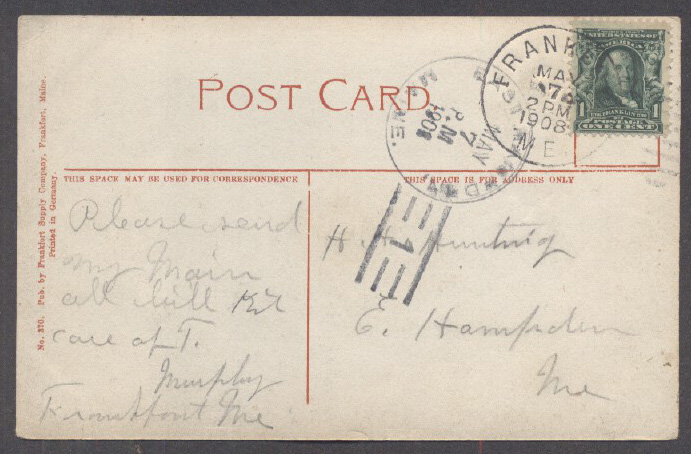 POST CARD.
FRANK
MAY
7
2 PM
1908
ME.
UNITED STATES OF
AMERICA
1 FRANKLIN 1
POSTAGE
ONE CENT
MAY
7
P.M
1908
MAINE.
1
THIS SPACE MAY BE USED FOR CORRESPONDENCE
THIS SPACE IS FOR ADDRESS ONLY
No. 370. Pub. by Frankfort Supply Company, Frankfort, Maine.
Printed in Germany.
Please send
my Main
all bill
care of T.
Murphy
Frankfort Me
H. A. Hunting
E. Hampden
Me